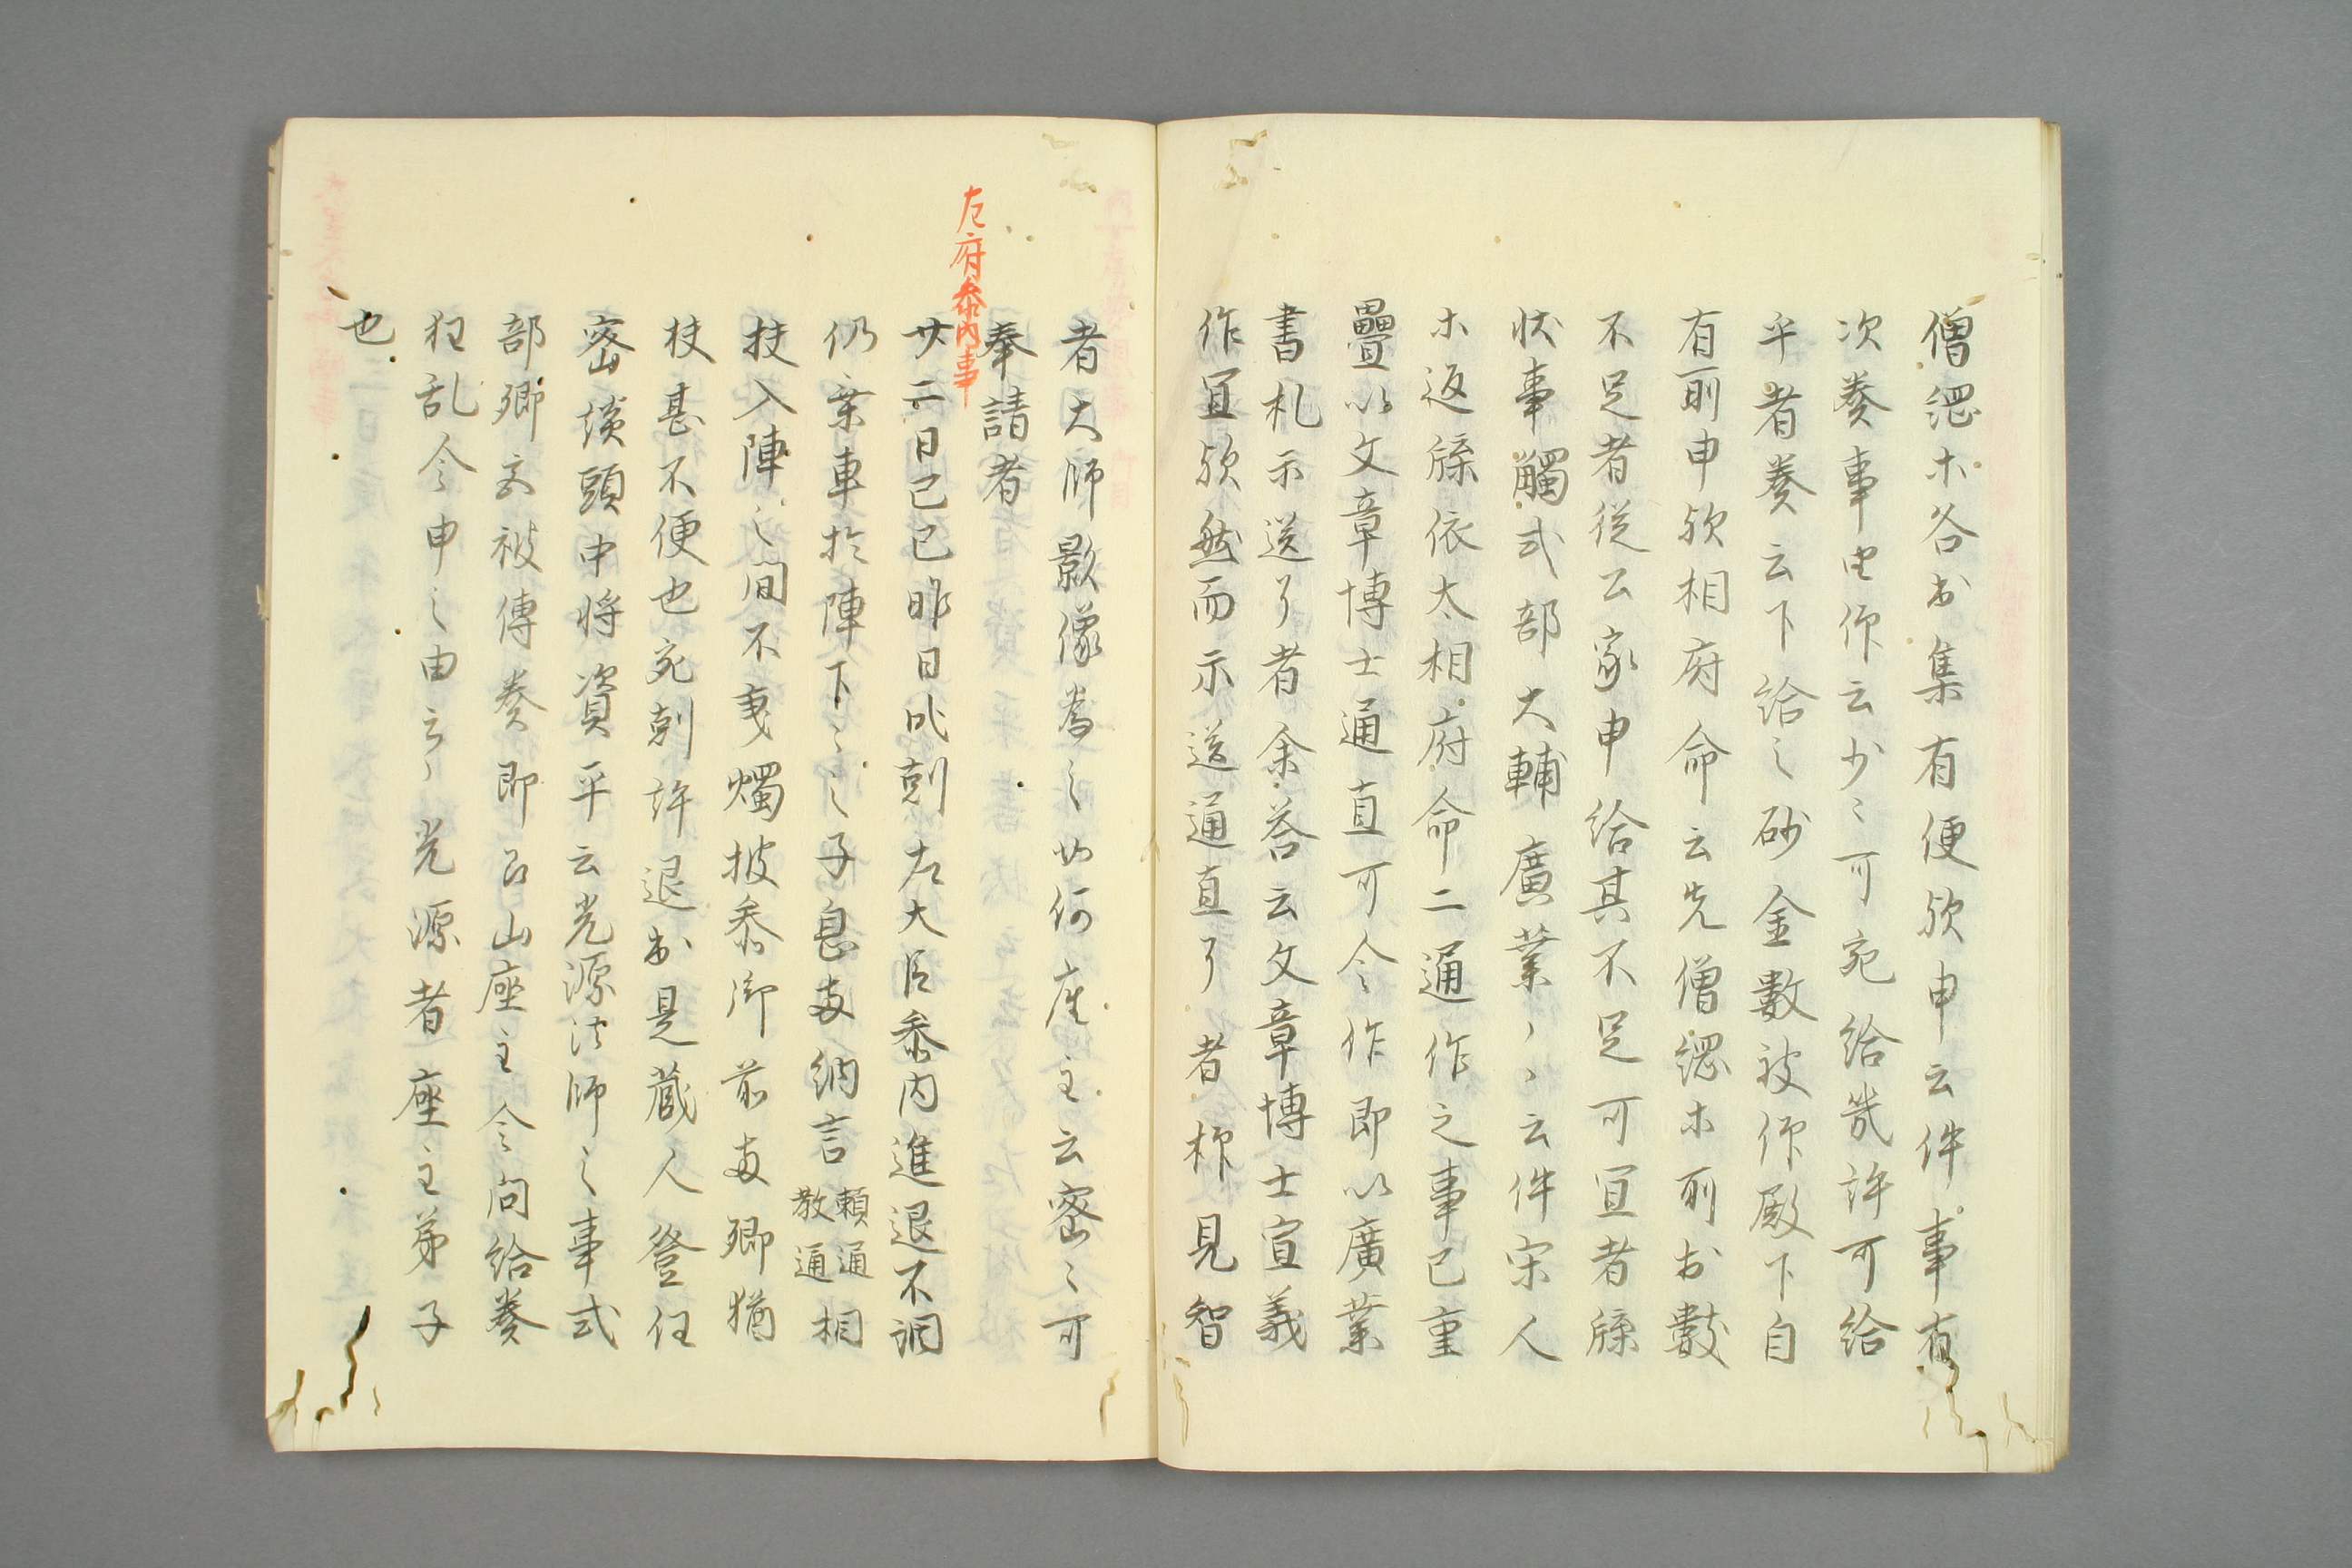 僧綱木各出集有便欤申云件事有
次奏事由仰云少〻可宛給幾許可給
乎者奏云下給之砂金數被仰殿下自
有所申欤相府命云先僧綱木所出數
不足者従公家申給其不足可宜者牒
状事觸式部大輔廣業〻〻云件宋人
木返牒依大相府命二通作之事已重
疊以文章博士通直可令作即以廣業
書札示送了者余荅云文章博士宣義
作宜欤然而示送通直了者抑見智
者大師影像為之如何座主云密〻可
奉請者
左府参内事
廿二日己巳昨日吡剋左大臣参内進退不調
仍乗車於陣下〻之子息両納言頼通教通相
扶入陣之間不叓燭扶参御前両卿猶
扶甚不便也宛剋許退出是蔵人登任
密談頭中将資平云光源法師之事式
部卿宮被傳奏即召山座主令問給奏
狂乱令申之由云〻光源者座主弟子
也